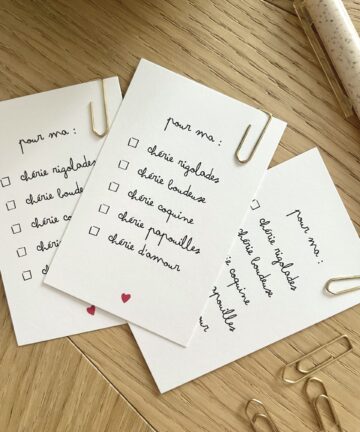 pour ma :
chérie rigolades
chérie boudeuse
chérie coquine
chérie papouilles
chérie d'amour
pour ma :
chérie rigolades
chérie boudeuse
chérie coquine
chérie
chérie
pour ma :
chérie rigolades
chérie boudeuse
coquine